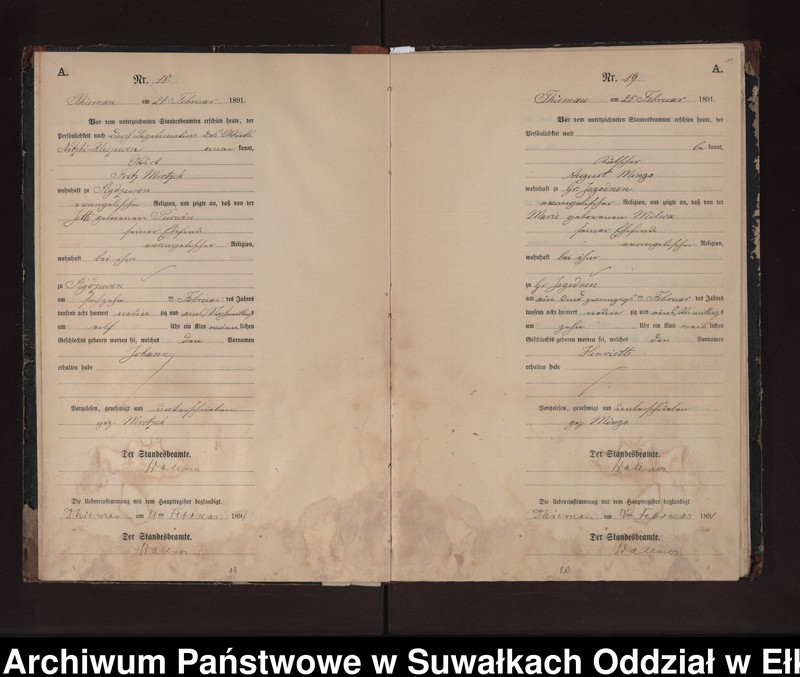 A.
Nr. 18
am 21 Februar 1891.
Vor dem unterzeichneten Standesbeamten erschien heute, der
Persönlichkeit nach durch
kannt,
Fritz
wohnhaft zu
evangelischer Religion, und zeigte an, daß von der
geborenen
seiner Ehefrau
evangelischer Religion,
wohnhaft bei ihm
zu
am fünfzehn ten Februar des Jahres
tausend acht hundert neun zig und eins, Nachmittags
um elf Uhr ein Kind männlichen
Geschlechts geboren worden sei, welches den Vornamen
Johann
erhalten habe
Vorgelesen, genehmigt und unterschrieben
gez.
Der Standesbeamte.
Die Uebereinstimmung mit dem Hauptregister beglaubigt.
am 21ten Februar 1891
Der Standesbeamte.
A.
Nr. 19
am 25 Februar 1891.
Vor dem unterzeichneten Standesbeamten erschien heute, der
Persönlichkeit nach
be kannt,
Kutscher
August Minga
wohnhaft zu Gr. Jagodnen
evangelischer Religion, und zeigte an, daß von der
Marie geborenen Milewa
seiner Ehefrau
evangelischer Religion,
wohnhaft bei ihm
zu Gr Jagodnen
am ein und zwanzigsten Februar des Jahres
tausend acht hundert neun zig und eins, Vormittags
um zehn Uhr ein Kind weib lichen
Geschlechts geboren worden sei, welches den Vornamen
Henriette
erhalten habe
Vorgelesen, genehmigt und unterschrieben
gez. Minga
Der Standesbeamte.
Die Uebereinstimmung mit dem Hauptregister beglaubigt.
am 25ten Februar 1891
Der Standesbeamte.
Archiwum Państwowe w Suwałkach Oddział w Ełk